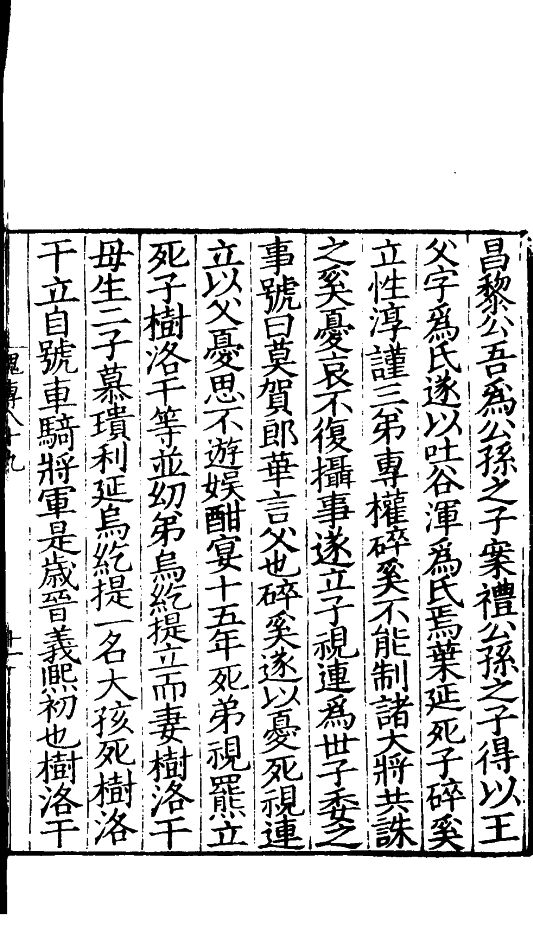 昌黎公吾爲公孫之子案禮公孫之子得以王
父字爲氏遂以吐谷渾爲氏焉葉延死子碎奚
立性淳謹三弟專權碎奚不能制諸大將共誅
之奚憂哀不復攝事遂立子視連爲世子委之
事號曰莫賀郎華言父也碎奚遂以憂死視連
立以父憂思不遊娛酣宴十五年死弟視羆立
死子樹洛干等並幼弟烏紇提立而妻樹洛干
母生二子慕璝利延烏紇提一名大孩死樹洛
干立自號車騎將軍是歲晉義熙初也樹洛干